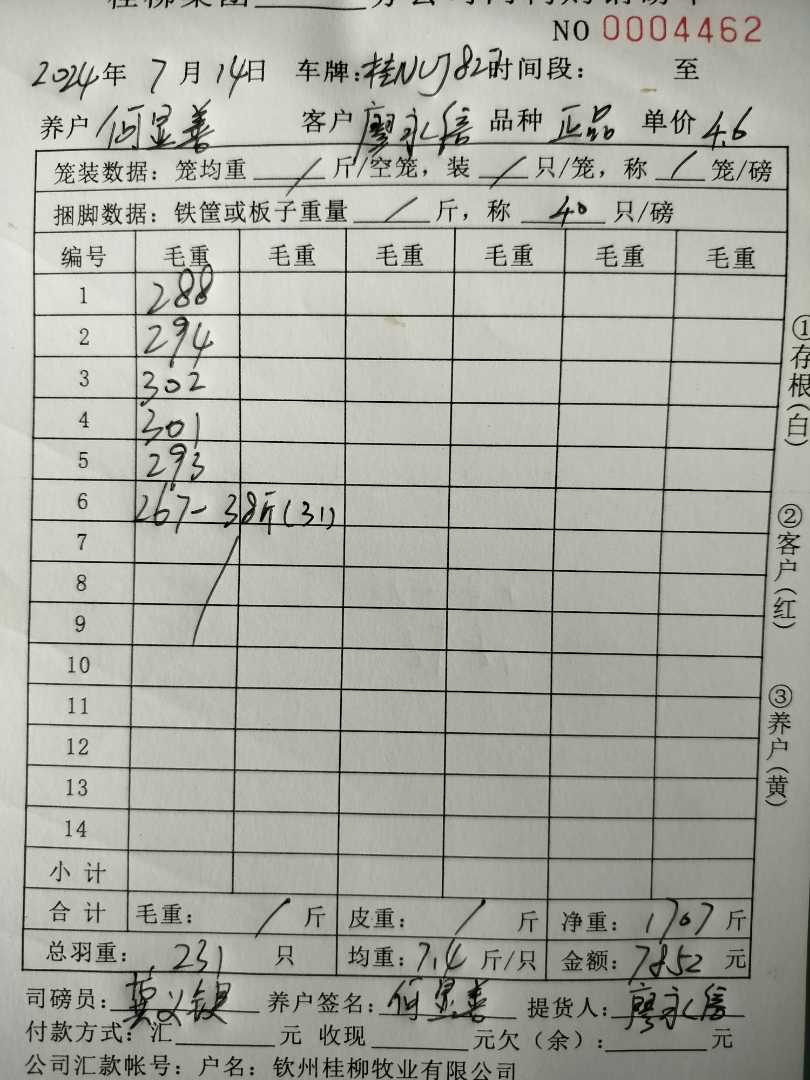 NO 0004462
2024年 7月 14日 车牌:桂NUJ82时间段: 至
养户 何显善 客户 廖永信 品种 正品 单价 4.6
笼装数据: 笼均重 / 斤/空笼, 装 / 只/笼, 称 / 笼/磅
捆脚数据: 铁筐或板子重量 / 斤, 称 40 只/磅
编号 毛重 毛重 毛重 毛重 毛重 毛重
1 288
2 294
3 302
4 301
5 293
6 267-38斤(31)
7
8
9
10
11
12
13
14
小计
合计 毛重: / 斤 皮重: / 斤 净重: 1707 斤
总羽重: 231 只 均重: 7.4 斤/只 金额: 7852 元
司磅员: 养户签名: 何显善 提货人: 廖永信
付款方式: 汇 元 收现 元欠(余): 元
公司汇款帐号: 户名: 钦州桂柳牧业有限公司
①存根(白)
②客户(红)
③养户(黄)